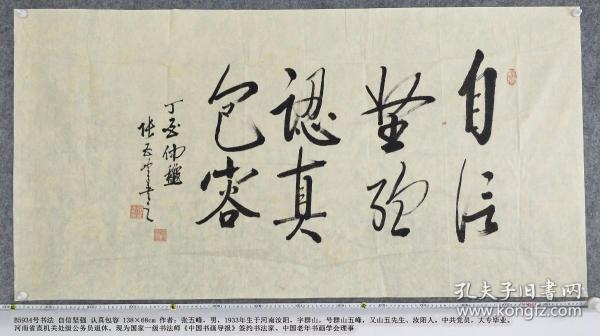 自信
堅強
認真
包容
丁亥仲秋
張五峰書
孔夫子旧书网
B5934号书法 自信坚强 认真包容 138×68cm 作者：张五峰，男，1933年生于河南汝阳，字群山，号群山五峰，又山五先生、汝阳人，中共党员，大专毕业，
河南省直机关处级公务员退休，现为国家一级书法师《中国书画导报》签约书法家、中国老年书画学会理事